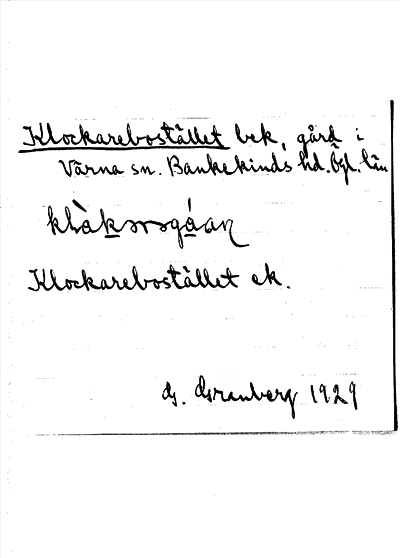 Klockarebostället bek. gård i
Värna sn. Bankekinds hd. Ögl. län
Klockarebostället ek.
G. Granberg 1929